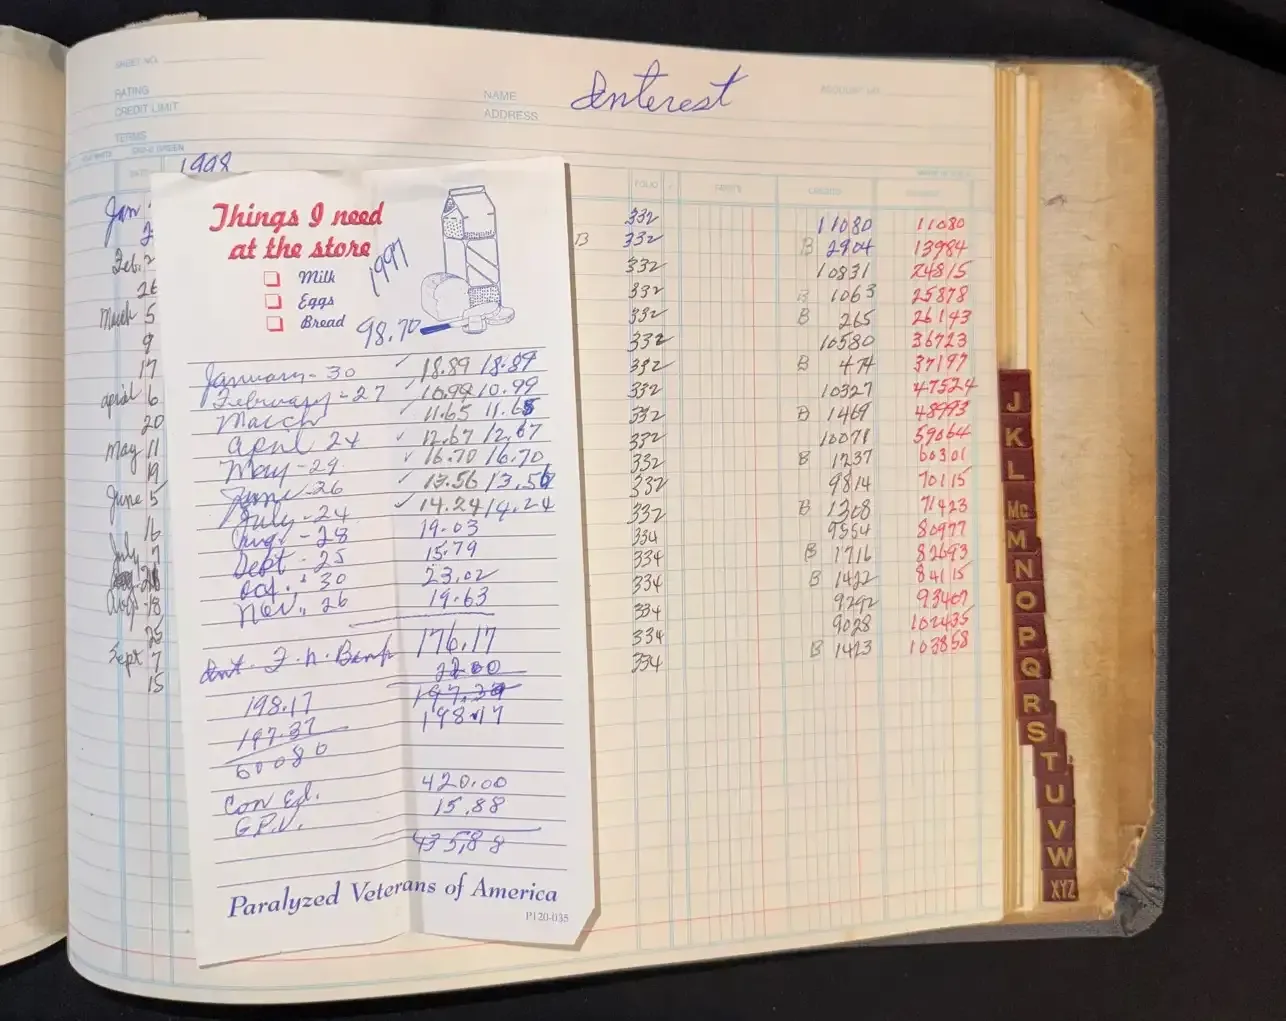 SHEET NO.
RATING
CREDIT LIMIT
NAME Interest
ADDRESS
ACCOUNT NO.
TERMS
1998
DATE
FOLIO DEBITS CREDITS BALANCE
Jan 332 11080 11080
B 332 B 2904 13984
Feb. 2 332 10831 24815
26 332 B 1063 25878
March 5 332 B 265 26143
9 332 10580 36723
17 332 B 474 37197
april 6 332 10327 47524
20 332 B 1469 48993
May 11 332 10071 59064
19 332 B 1237 60301
June 5 332 9814 70115
16 332 B 1308 71423
July 7 334 9554 80977
334 B 1716 82693
Aug - 18 334 B 1422 84115
334 9292 93407
25 334 9028 102435
Sept 7 334 B 1423 103858
15
Things I need
at the store
1997
Milk
Eggs
Bread
98.70
January - 30 18.89 18.89
February - 27 10.99 10.99
March 11.65 11.65
April 24 12.67 12.67
May - 29 16.70 16.70
June - 26 13.56 13.56
July - 24 14.24 14.24
Aug. - 28 19.03
Sept - 25 15.79
Oct. - 30 23.02
Nov. 26 19.63
176.17
Int. F. N. Bank 22.00
198.17 197.37
197.37 198.17
600 80
Con Ed. 420.00
G.P.U. 15.88
435.88
Paralyzed Veterans of America
P120-035
J
K
L
Mc
M
N
O
P
Q
R
S
T
U
V
W
XYZ